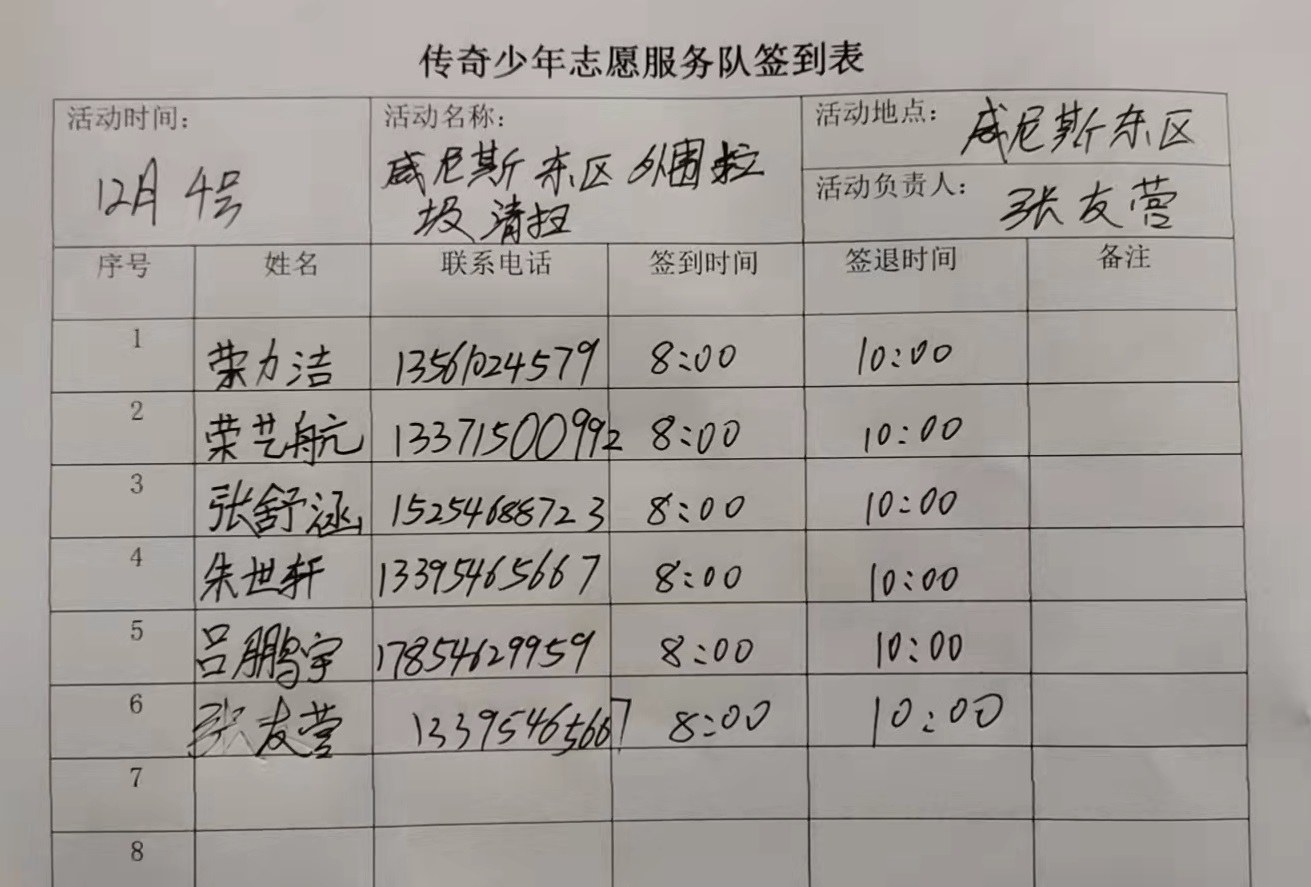 传奇少年志愿服务队签到表
活动时间:
12月4号
活动名称:
威尼斯东区外围垃
圾清扫
活动地点: 威尼斯东区
活动负责人: 张友营
序号 姓名 联系电话 签到时间 签退时间 备注
1 荣力洁 13561024579 8:00 10:00
2 荣艺航 13371500992 8:00 10:00
3 张舒涵 15254688723 8:00 10:00
4 朱世轩 13395465667 8:00 10:00
5 吕鹏宇 17854629959 8:00 10:00
6 张友营 13395465667 8:00 10:00
7
8